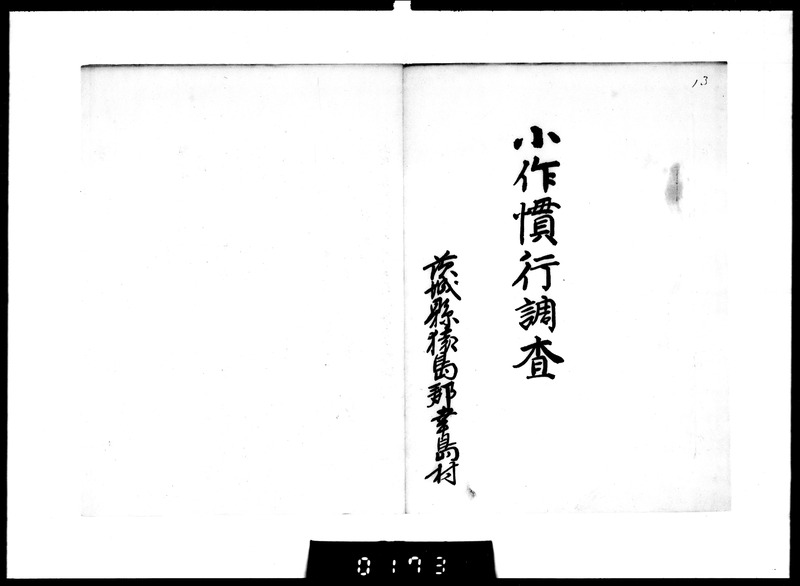 13
小作慣行調査
茨城縣猿島郡幸島村
0173